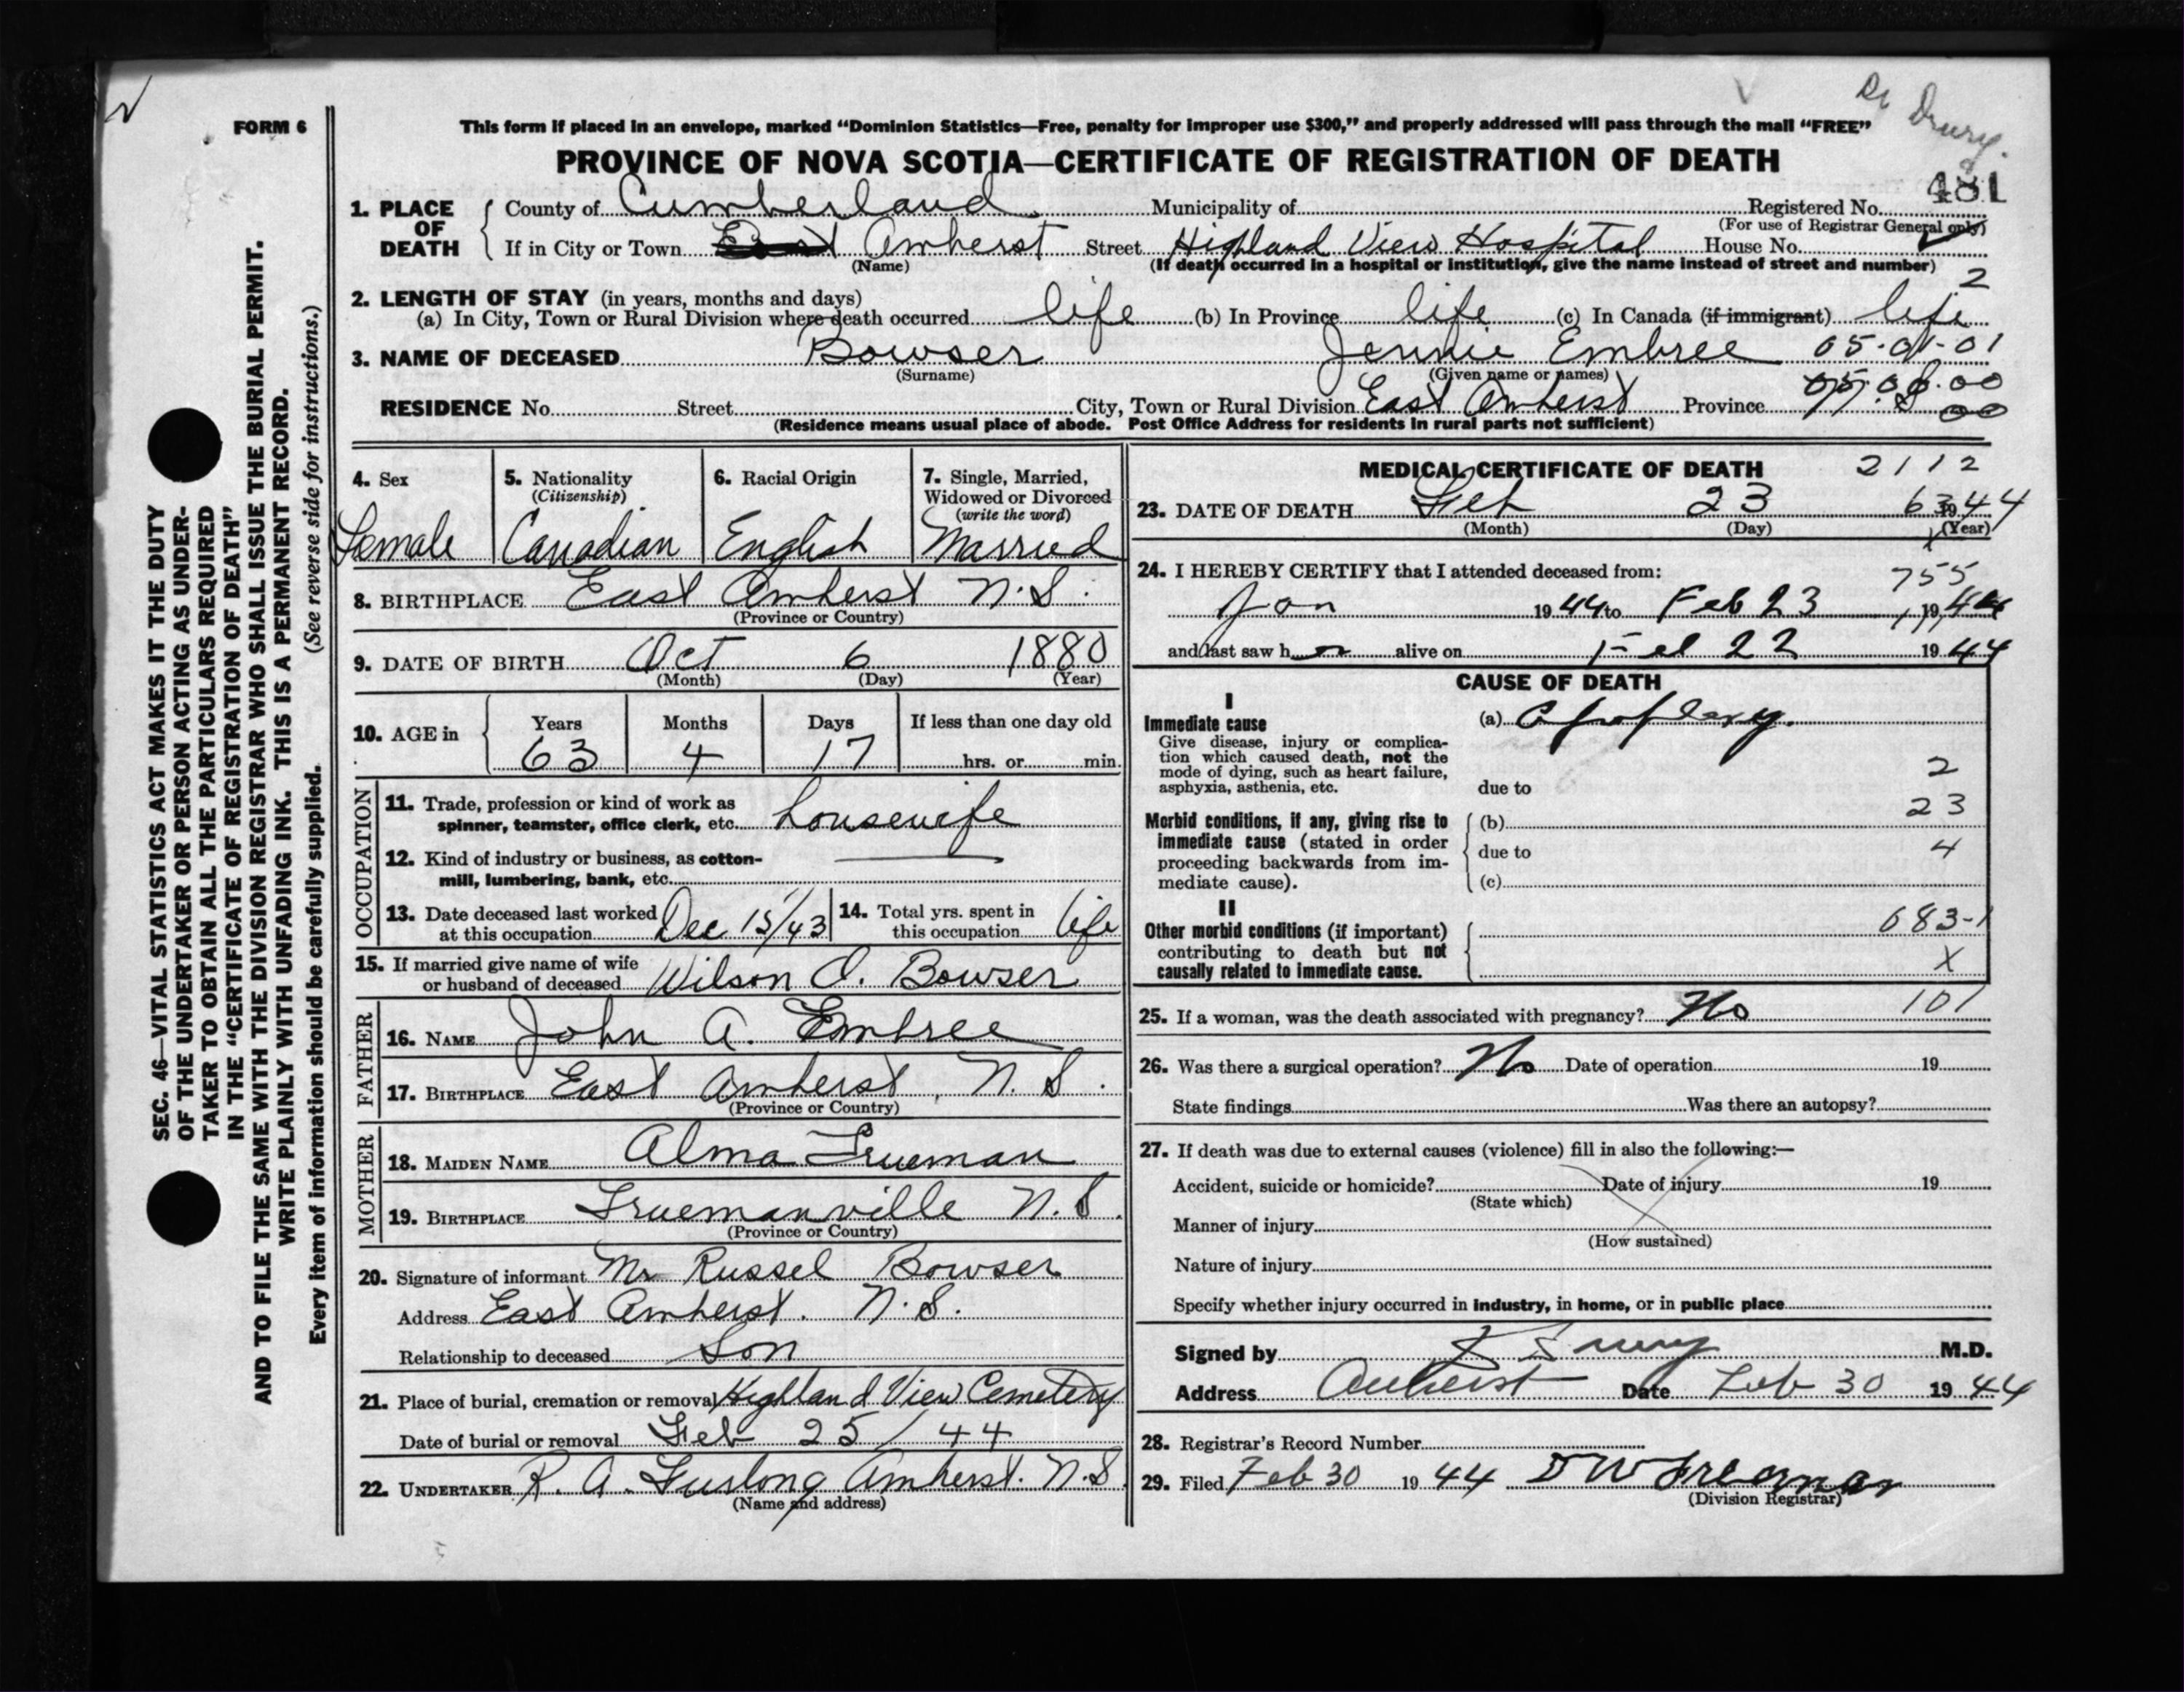 FORM 6
Dr Drury.
This form if placed in an envelope, marked “Dominion Statistics—Free, penalty for improper use $300,” and properly addressed will pass through the mail “FREE”
PROVINCE OF NOVA SCOTIA—CERTIFICATE OF REGISTRATION OF DEATH
481
1. PLACE OF DEATH
County of Cumberland Municipality of Registered No.
(For use of Registrar General only)
If in City or Town East Amherst Street Highland View Hospital House No.
(Name) (If death occurred in a hospital or institution, give the name instead of street and number)
2
2. LENGTH OF STAY (in years, months and days)
(a) In City, Town or Rural Division where death occurred life (b) In Province life (c) In Canada (if immigrant) life
3. NAME OF DECEASED Bowser Jennie Embree
(Surname) (Given name or names)
RESIDENCE No. Street City, Town or Rural Division East Amherst Province N.S.
(Residence means usual place of abode. Post Office Address for residents in rural parts not sufficient)
4. Sex
Female
5. Nationality
(Citizenship)
Canadian
6. Racial Origin
English
7. Single, Married,
Widowed or Divorced
(write the word)
Married
8. BIRTHPLACE East Amherst N.S.
(Province or Country)
9. DATE OF BIRTH Oct 6 1880
(Month) (Day) (Year)
10. AGE in
Years Months Days If less than one day old
63 4 17 hrs. or min.
OCCUPATION
11. Trade, profession or kind of work as
spinner, teamster, office clerk, etc. housewife
12. Kind of industry or business, as cotton-
mill, lumbering, bank, etc.
13. Date deceased last worked
at this occupation Dec 15/43
14. Total yrs. spent in
this occupation life
15. If married give name of wife
or husband of deceased Wilson O. Bowser
FATHER
16. NAME John A. Embree
17. BIRTHPLACE East Amherst, N.S.
(Province or Country)
MOTHER
18. MAIDEN NAME Alma Trueman
19. BIRTHPLACE Truemanville N.S.
(Province or Country)
20. Signature of informant Mr Russel Bowser
Address East Amherst. N.S.
Relationship to deceased Son
21. Place of burial, cremation or removal Highland View Cemetery
Date of burial or removal Feb 25/44
22. UNDERTAKER R. A. Furlong Amherst. N.S.
(Name and address)
MEDICAL CERTIFICATE OF DEATH 2112
23. DATE OF DEATH Feb 23 1944
63
(Month) (Day) (Year)
24. I HEREBY CERTIFY that I attended deceased from:
755
Jan 1944 to Feb 23, 1944
and last saw h er alive on Feb 22 1944
CAUSE OF DEATH
I
Immediate cause
Give disease, injury or complica-
tion which caused death, not the
mode of dying, such as heart failure,
asphyxia, asthenia, etc.
(a) Apoplexy.
2
due to
Morbid conditions, if any, giving rise to
immediate cause (stated in order
proceeding backwards from im-
mediate cause).
(b) 23
due to 4
(c)
II
Other morbid conditions (if important)
contributing to death but not
causally related to immediate cause.
683-1
X
25. If a woman, was the death associated with pregnancy? No 101
26. Was there a surgical operation? No Date of operation 19
State findings Was there an autopsy?
27. If death was due to external causes (violence) fill in also the following:—
Accident, suicide or homicide? Date of injury 19
(State which)
Manner of injury
(How sustained)
Nature of injury
Specify whether injury occurred in industry, in home, or in public place
Signed by Drury M.D.
Address Amherst Date Feb 30 1944
28. Registrar's Record Number
29. Filed Feb 30 1944
(Division Registrar)
SEC. 46—VITAL STATISTICS ACT MAKES IT THE DUTY
OF THE UNDERTAKER OR PERSON ACTING AS UNDER-
TAKER TO OBTAIN ALL THE PARTICULARS REQUIRED
IN THE “CERTIFICATE OF REGISTRATION OF DEATH”
AND TO FILE THE SAME WITH THE DIVISION REGISTRAR WHO SHALL ISSUE THE BURIAL PERMIT.
WRITE PLAINLY WITH UNFADING INK. THIS IS A PERMANENT RECORD.
Every item of information should be carefully supplied. (See reverse side for instructions.)